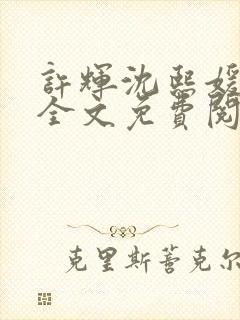 許輝沈熙媛
全文免費閱
克里斯蒂克尔